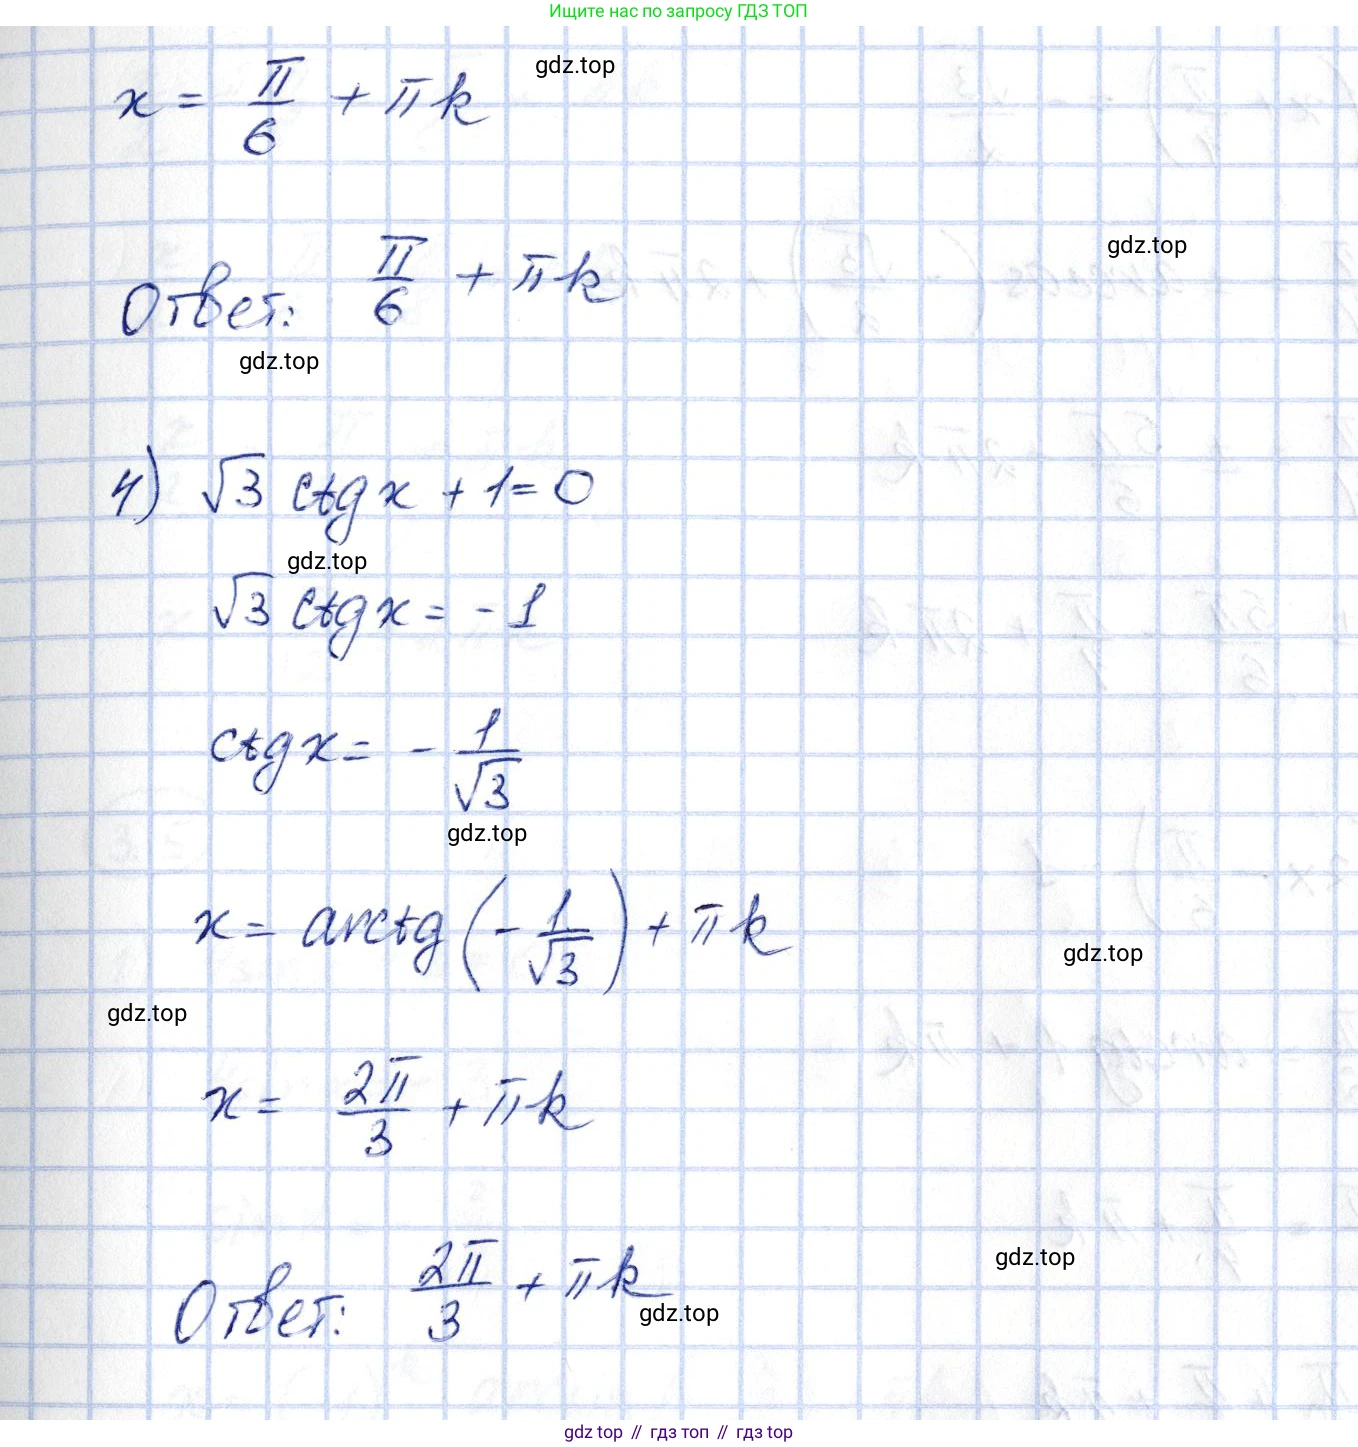 Ищите нас по запросу ГДЗ ТОП
gdz.top
x = π/6 + πk
gdz.top
Ответ: π/6 + πk
gdz.top
4) √3 ctgx + 1 = 0
gdz.top
√3 ctgx = - 1
ctgx = - 1/√3
gdz.top
x = arcctg (- 1/√3) + πk
gdz.top
gdz.top
x = 2π/3 + πk
gdz.top
Ответ: 2π/3 + πk
gdz.top
gdz top // гдз топ // гдз top